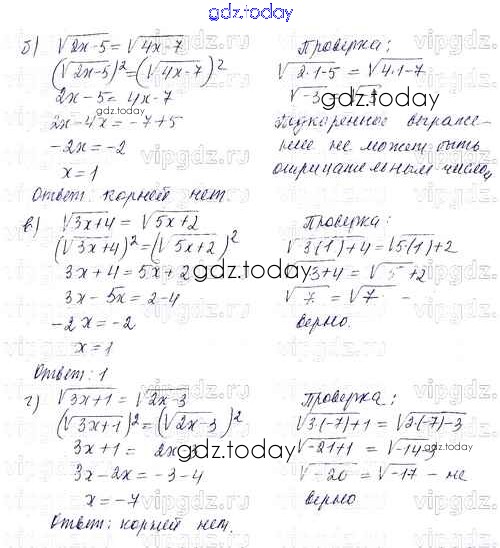 gdz.today
б) √2x-5 = √4x-7
(√2x-5)² = (√4x-7)²
2x-5 = 4x-7
2x-4x = -7+5
-2x = -2
x = 1
Ответ: корней нет.
Проверка:
√2·1-5 = √4·1-7
√-3 = √-3
gdz.today
Подкоренное выраже-
ние не может быть
отрицательным числом
в) √3x+4 = √5x+2
(√3x+4)² = (√5x+2)²
3x+4 = 5x+2
3x-5x = 2-4
-2x = -2
x = 1
Ответ: 1
Проверка:
√3(1)+4 = √5(1)+2
√3+4 = √5+2
√7 = √7 -
верно.
gdz.today
г) √3x+1 = √2x-3
(√3x+1)² = (√2x-3)²
3x+1 = 2x-3
3x-2x = -3-4
x = -7
Ответ: корней нет.
Проверка:
√3(-7)+1 = √2(-7)-3
√-21+1 = √-14-3
√-20 = √-17 - не
верно
gdz.today